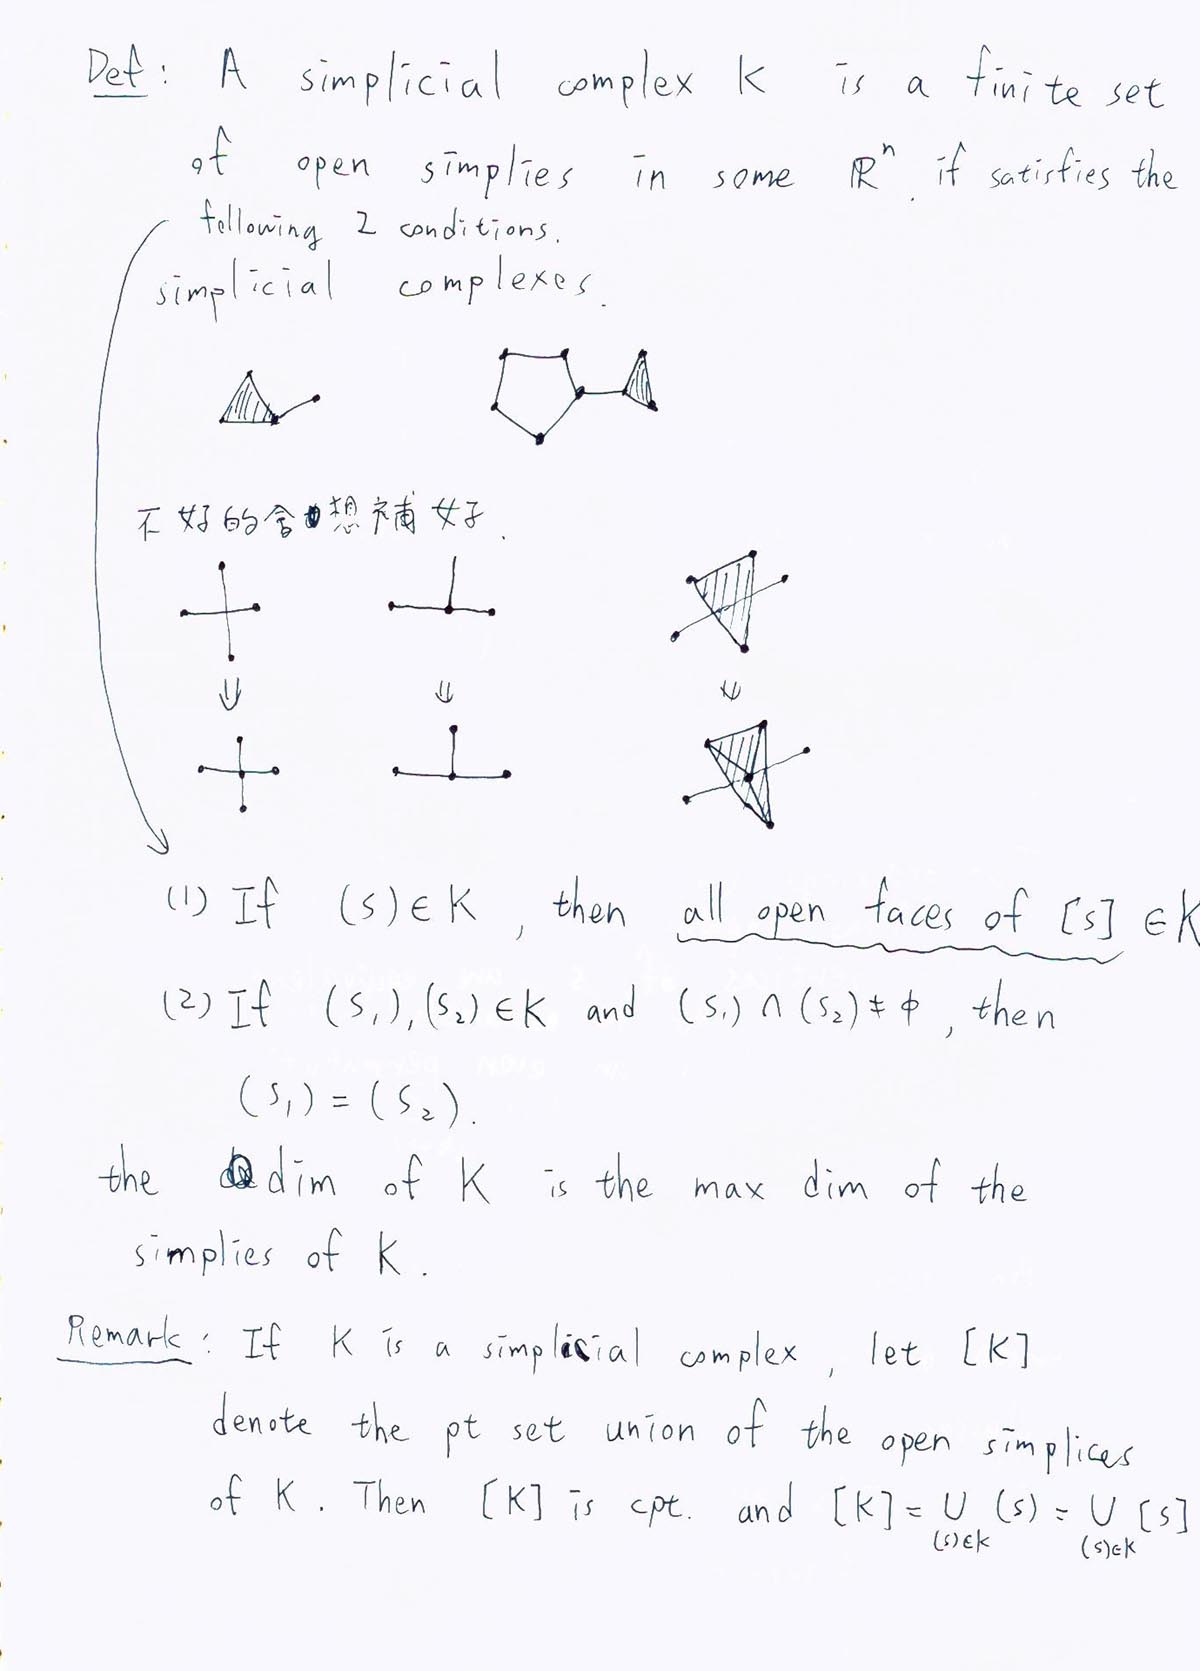 Def: A simplicial complex K is a finite set
of open simplies in some ℝⁿ if satisfies the
following 2 conditions.
simplicial complexes.
不好的會想補好.
(1) If (s)∈K, then all open faces of [s] ∈K
(2) If (s₁),(s₂)∈K and (s₁)∩(s₂)≠ϕ, then
(s₁)=(s₂).
the dim of K is the max dim of the
simplies of K.
Remark: If K is a simplicial complex, let [K]
denote the pt set union of the open simplices
of K. Then [K] is cpt. and [K]=∪ (s)=∪ [s]
(s)∈K (s)∈K